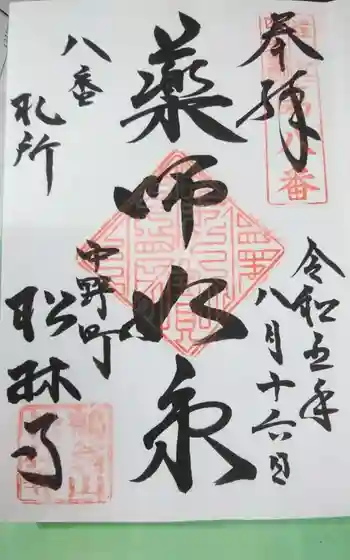 奉拝
八番
令和五年
八月十六日
薬師如来
中野町
八番
札所
松林寺